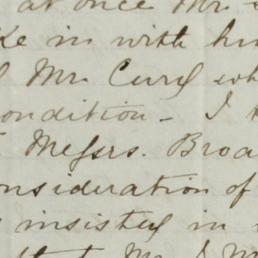 at once Mr
in with
Mr. Curd
condition - I
Messrs. Broa
onsideration of
insisted in
Mr. J. M